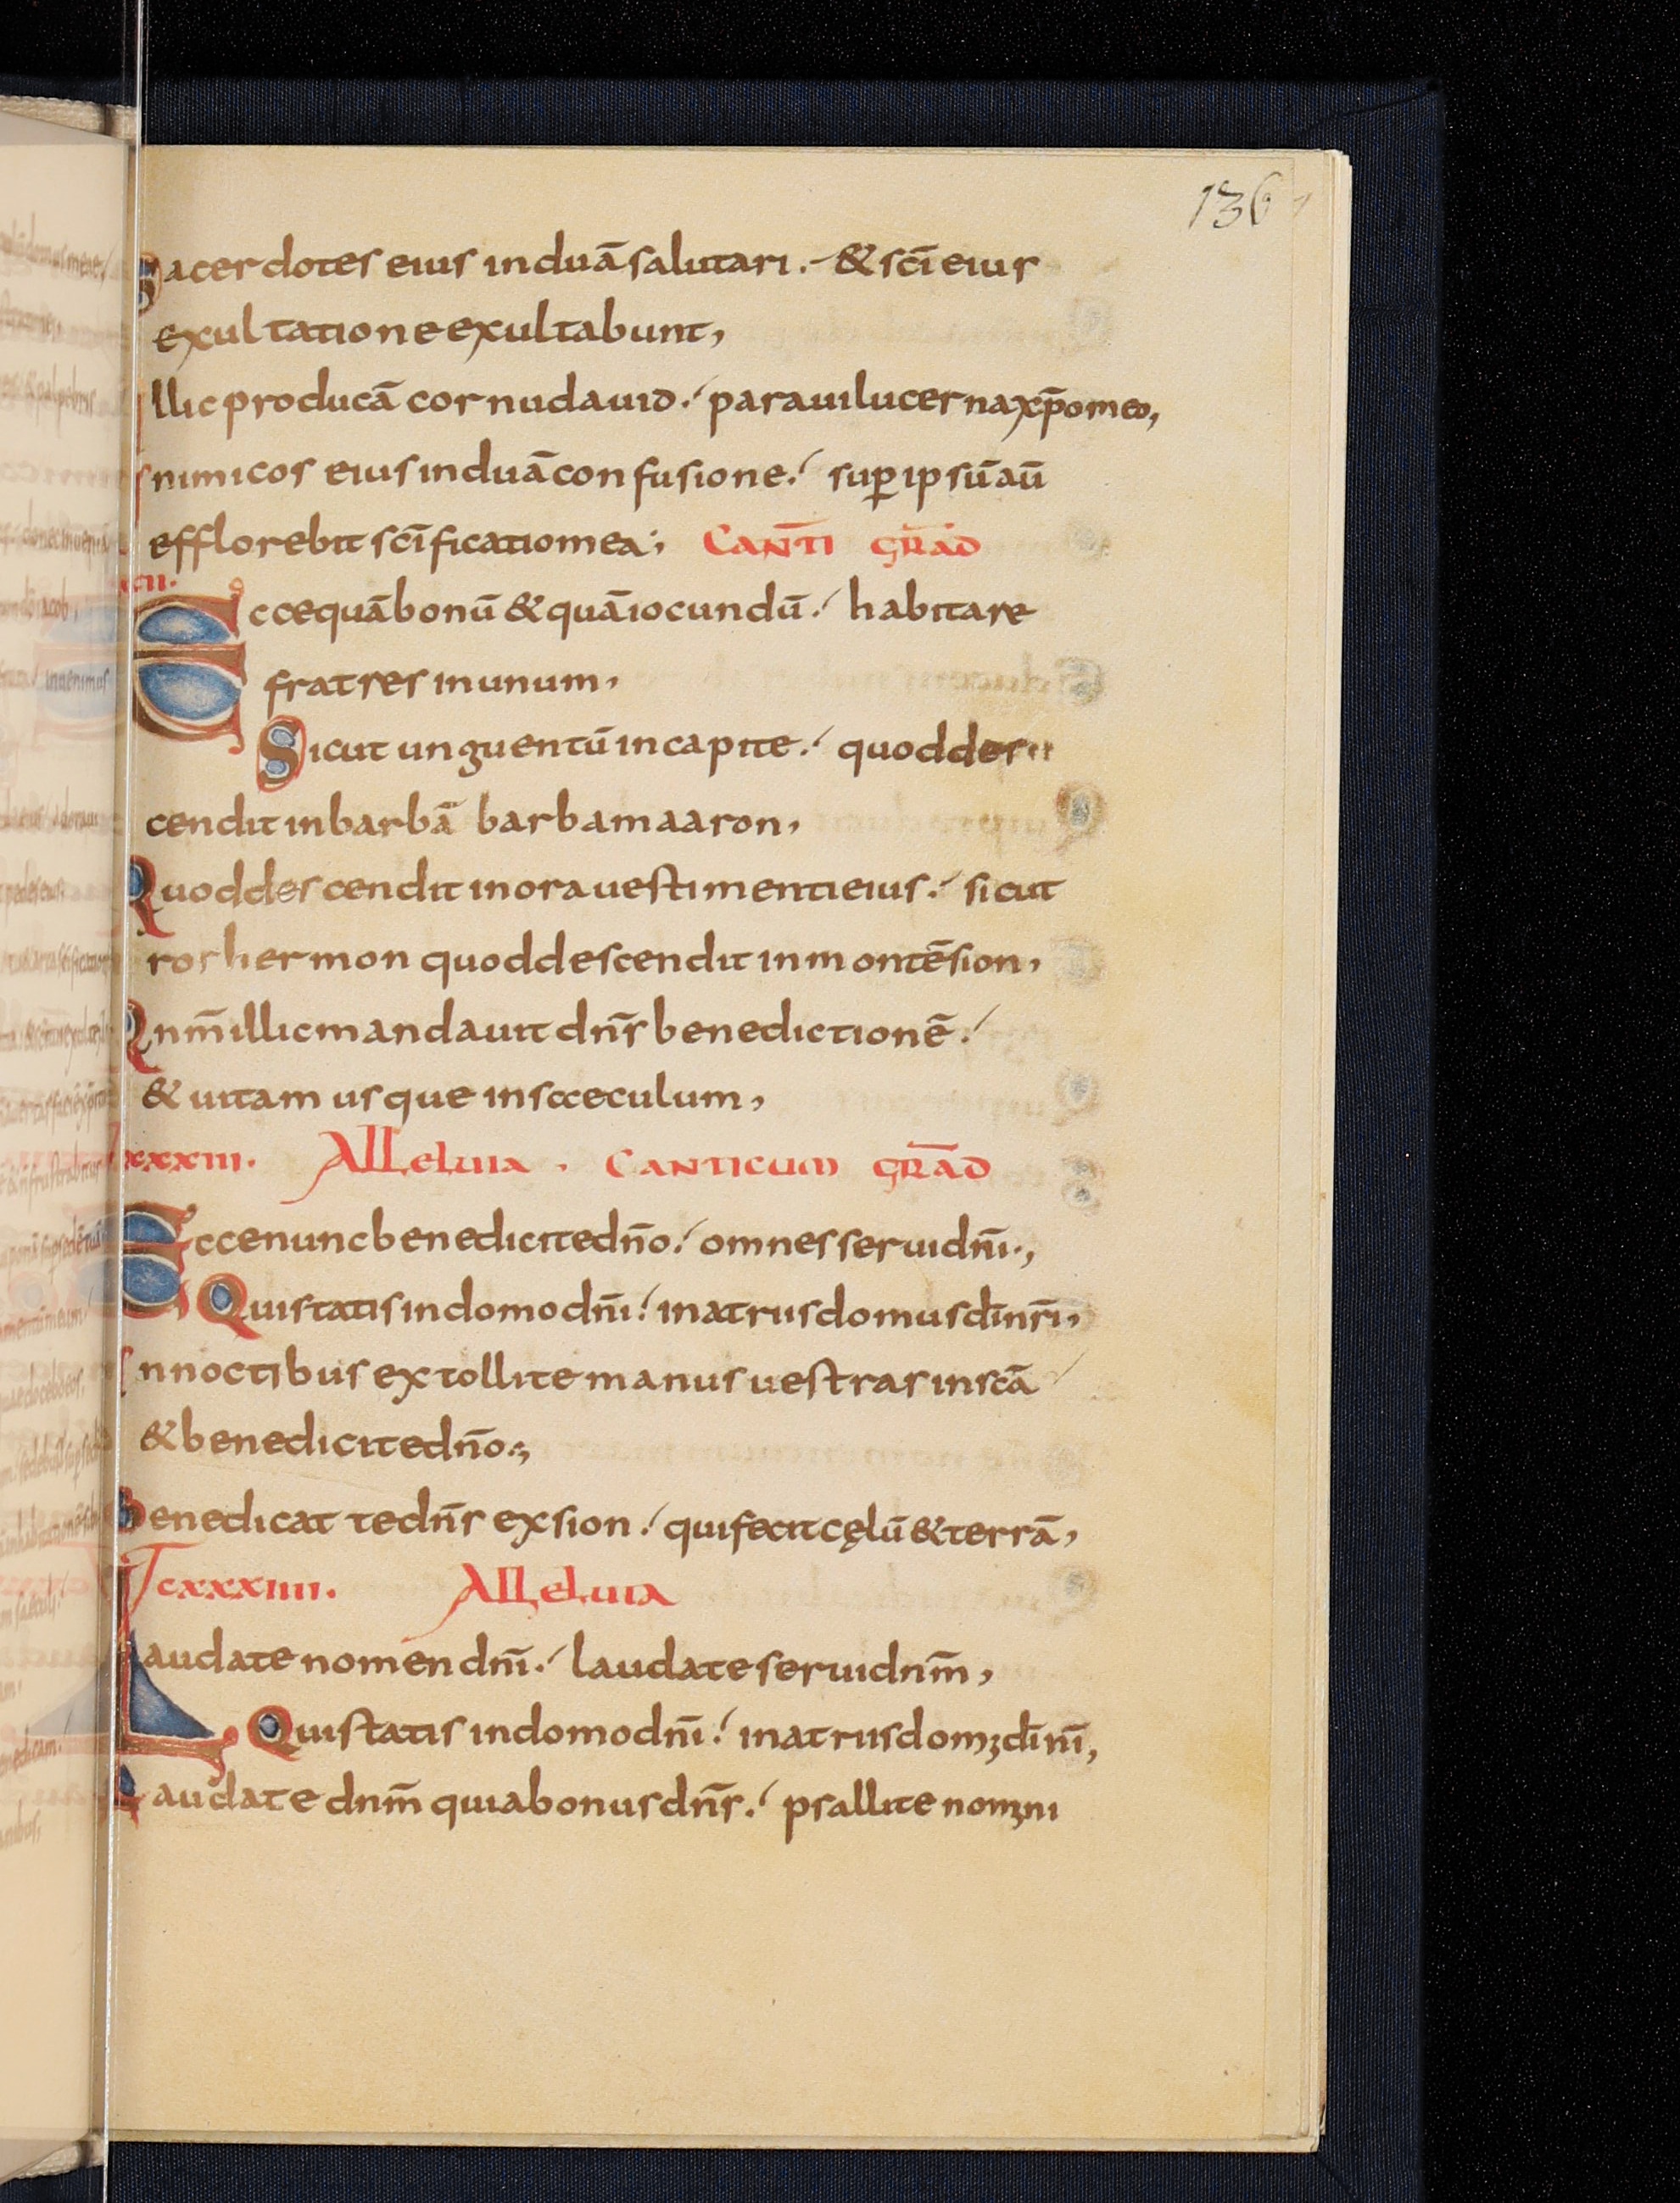 136
Sacerdotes eius induā salutari. & scī eius
exultatione exultabunt,
Illic producā cornu dauid. paraui lucerna xp̄o meo,
Inimicos eius induā confusione. sup̱ ipsū aū
efflorebit scīficatio mea; CANT̄I GR̄AD
cxxxii.
Ecce quā bonū & quā iocundū. habitare
fratres in unum,
Sicut unguentū in capite. quod des
cendit in barbā barbam aaron,
Quod descendit in ora uestimenti eius. sicut
ros hermon quod descendit in montē sion,
Qnm̄ illic mandauit dn̄s benedictionē.
& uitam usque in sęculum,
cxxxiii. Alleluia. CANTICUM GR̄AD
Ecce nunc benedicite dn̄o. omnes serui dn̄i.,
Qui statis in domo dn̄i. in atriis domus dī nr̄i,
In noctibus extollite manus uestras in scā
& benedicite dn̄o.,
Benedicat te dn̄s ex sion. qui fecit cęlū & terrā,
cxxxiiii. Alleluia
Laudate nomen dn̄i. laudate serui dnm̄,
Qui statis in domo dn̄i. in atriis domꝫ dī nr̄i,
Laudate dnm̄ quia bonus dn̄s. psallite nomini